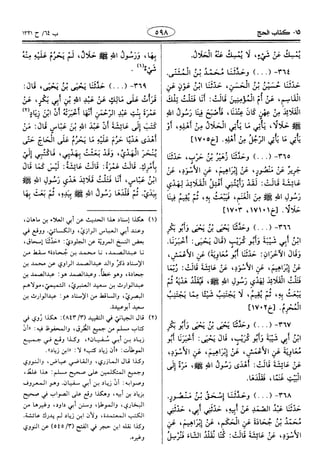 ١٥- كتاب الحج
٥٩٨
ب/ ٦٤، ح ١٣٢١
يُمْسِكُ عَنْ شَيْءٍ، لَا يُمْسِكُ عَنْهُ الْحَلَالُ.
٣٦٤- (...) وحَدَّثَنَا مُحَمَّدُ بْنُ الْمُثَنَّى.
حَدَّثَنَا حُسَيْنُ بْنُ الْحَسَنِ. حَدَّثَنَا ابْنُ عَوْنٍ عَنِ
الْقَاسِمِ، عَنْ أُمِّ الْمُؤْمِنِينَ قَالَتْ: أَنَا فَتَلْتُ تِلْكَ
الْقَلَائِدَ مِنْ عِهْنٍ كَانَ عِنْدَنَا، فَأَصْبَحَ فِينَا رَسُولُ اللهِ
ﷺ حَلَالًا، يَأْتِي مَا يَأْتِي الْحَلَالُ مِنْ أَهْلِهِ، أَوْ
يَأْتِي مَا يَأْتِي الرَّجُلُ مِنْ أَهْلِهِ. [خ١٧٠٥]
٣٦٥- (...) وحَدَّثَنَا زُهَيْرُ بْنُ حَرْبٍ. حَدَّثَنَا
جَرِيرٌ عَنْ مَنْصُورٍ، عَنْ إِبْرَاهِيمَ، عَنِ الْأَسْوَدِ، عَنْ
عَائِشَةَ قَالَتْ: لَقَدْ رَأَيْتُنِي أَفْتِلُ الْقَلَائِدَ لِهَدْيِ
رَسُولِ اللهِ ﷺ مِنَ الْغَنَمِ، فَيَبْعَثُ بِهِ، ثُمَّ يُقِيمُ فِينَا
حَلَالًا. [خ١٧٠١، ١٧٠٣]
٣٦٦- (...) وحَدَّثَنَا يَحْيَى بْنُ يَحْيَى وَأَبُو بَكْرِ
ابْنُ أَبِي شَيْبَةَ وَأَبُو كُرَيْبٍ (قَالَ يَحْيَى: أَخْبَرَنَا.
وَقَالَ الْآخَرَانِ: حَدَّثَنَا أَبُو مُعَاوِيَةَ) عَنِ الْأَعْمَشِ،
عَنْ إِبْرَاهِيمَ، عَنِ الْأَسْوَدِ، عَنْ عَائِشَةَ قَالَتْ: رُبَّمَا
فَتَلْتُ الْقَلَائِدَ لِهَدْيِ رَسُولِ اللهِ ﷺ، فَيُقَلِّدُ هَدْيَهُ ثُمَّ
يَبْعَثُ بِهِ، ثُمَّ يُقِيمُ، لَا يَجْتَنِبُ شَيْئًا مِمَّا يَجْتَنِبُ
الْمُحْرِمُ. [خ١٧٠٢]
٣٦٧- (...) وحَدَّثَنَا يَحْيَى بْنُ يَحْيَى وَأَبُو بَكْرِ
ابْنُ أَبِي شَيْبَةَ وَأَبُو كُرَيْبٍ. قَالَ يَحْيَى: أَخْبَرَنَا أَبُو
مُعَاوِيَةَ عَنِ الْأَعْمَشِ، عَنْ إِبْرَاهِيمَ، عَنِ الْأَسْوَدِ،
عَنْ عَائِشَةَ قَالَتْ: أَهْدَى رَسُولُ اللهِ ﷺ، مَرَّةً إِلَى
الْبَيْتِ غَنَمًا، فَقَلَّدَهَا.
٣٦٨- (...) وحَدَّثَنَا إِسْحَقُ بْنُ مَنْصُورٍ.
حَدَّثَنَا عَبْدُ الصَّمَدِ عَنْ أَبِيهِ، حَدَّثَنِي أَبِي، حَدَّثَنِي
مُحَمَّدُ بْنُ جُحَادَةَ عَنِ الْحَكَمِ، عَنْ إِبْرَاهِيمَ، عَنِ
الْأَسْوَدِ، عَنْ عَائِشَةَ قَالَتْ: كُنَّا نُقَلِّدُ الشَّاءَ فَنُرْسِلُ
بِهَا، وَرَسُولُ اللهِ ﷺ حَلَالٌ، لَمْ يَحْرُمْ عَلَيْهِ مِنْهُ
شَيْءٌ(١).
٣٦٩- (...) وحَدَّثَنَا يَحْيَى بْنُ يَحْيَى، قَالَ:
قَرَأْتُ عَلَى مَالِكٍ عَنْ عَبْدِ اللهِ بْنِ أَبِي بَكْرٍ، عَنْ
عَمْرَةَ بِنْتِ عَبْدِ الرَّحْمَنِ أَنَّهَا أَخْبَرَتْهُ أَنَّ ابْنَ زِيَادٍ(٢)
كَتَبَ إِلَى عَائِشَةَ أَنَّ عَبْدَ اللهِ بْنَ عَبَّاسٍ قَالَ: مَنْ
أَهْدَى هَدْيًا حَرُمَ عَلَيْهِ مَا يَحْرُمُ عَلَى الْحَاجِّ حَتَّى
يُنْحَرَ الْهَدْيُ، وَقَدْ بَعَثْتُ بِهَدْيِي، فَاكْتُبِي إِلَيَّ
بِأَمْرِكِ. قَالَتْ عَمْرَةُ: قَالَتْ عَائِشَةُ: لَيْسَ كَمَا قَالَ
ابْنُ عَبَّاسٍ، أَنَا فَتَلْتُ قَلَائِدَ هَدْيِ رَسُولِ اللهِ ﷺ
بِيَدَيَّ، ثُمَّ قَلَّدَهَا رَسُولُ اللهِ ﷺ بِيَدِهِ، ثُمَّ بَعَثَ بِهَا
(١) هكذا إسناد هذا الحديث عن أبي العلاء بن ماهان،
وعند أبي العباس الرازي والكسائي، ووقع في
بعض النسخ المروية عن الجلودي: حدثنا إسحاق،
نا عبدالصمد، نا محمد بن جحادة؛ سقط من
الإسناد ذكر والد عبدالصمد الراوي عن محمد بن
جحادة، وهو خطأ. وعبدالصمد هو: عبدالصمد بن
عبدالوارث بن سعيد العنبري، التميمي، مولاهم
البصري، والساقط من الإسناد هو: عبدالوارث بن
سعيد أبو عبيدة.
(٢) قال الجياني في التقييد (٨٤٣/٣): هكذا روي في
كتاب مسلم من جميع الطرق، والمحفوظ فيه: «أن
زياد بن أبي سفيان»، وكذا وقع في جميع
الموطآت: «أن زياد كتب» لا: «ابن زياد».
وكذا قال المازري، والقاضي عياض، والنووي
وجميع المتكلمين على صحيح مسلم: هذا غلط،
وصوابه: أن زياد بن أبي سفيان. وهو المعروف
بزياد بن أبيه، وهكذا وقع على الصواب في صحيح
البخاري، والموطإ، وسنن أبي داود، وغيرها من
الكتب المعتمدة، ولأن ابن زياد لم يدرك عائشة.
وكذا نقله ابن حجر في الفتح (٥٤٥/٣) عن النووي
وغيره.